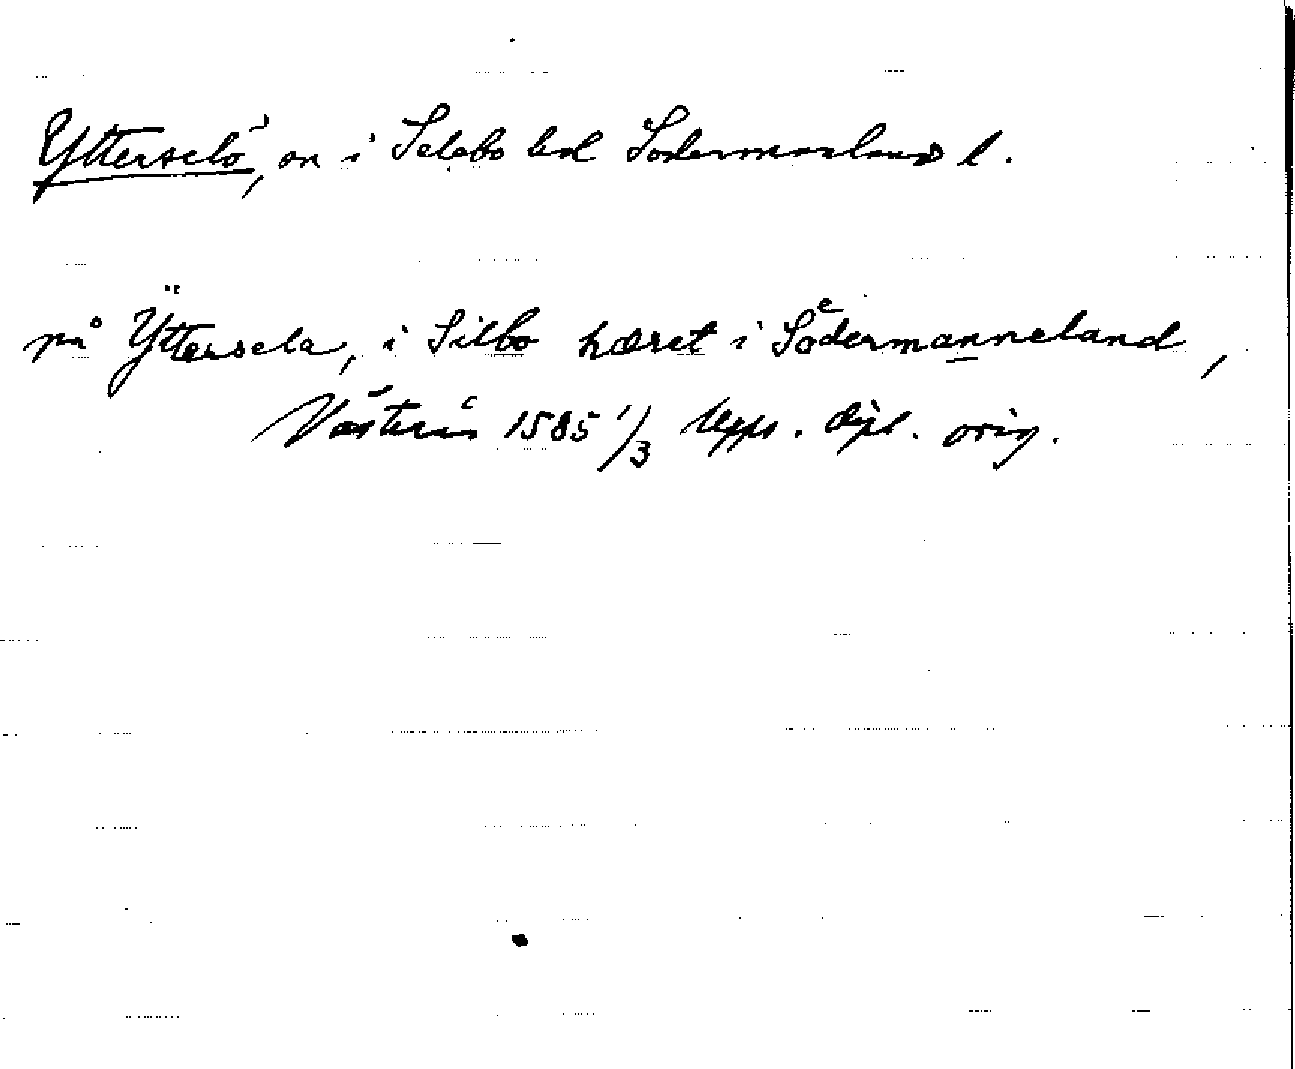 Ytterselö, ön i Selebo hd Södermanland l.
på Ÿttersela, i Silbo hæret i Södermanneland,
Västerås 1585 1/3 Upps. dipl. orig.